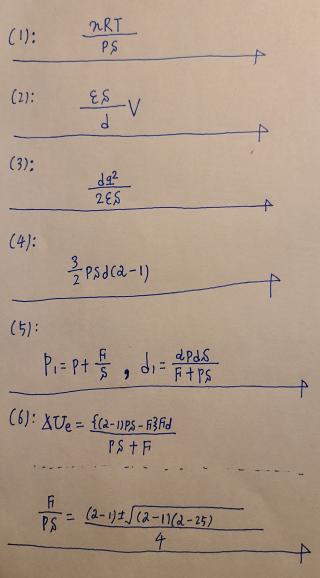 (1): nRT/PS
(2): εS/d V
(3): dq²/2εS
(4): 3/2 PSd(α-1)
(5):
P₁=P+F/S , d₁=αPdS/F+PS
(6): ΔUe={(α-1)PS-F}Fd/PS+F
F/PS=(α-1)±√(α-1)(α-25)/4